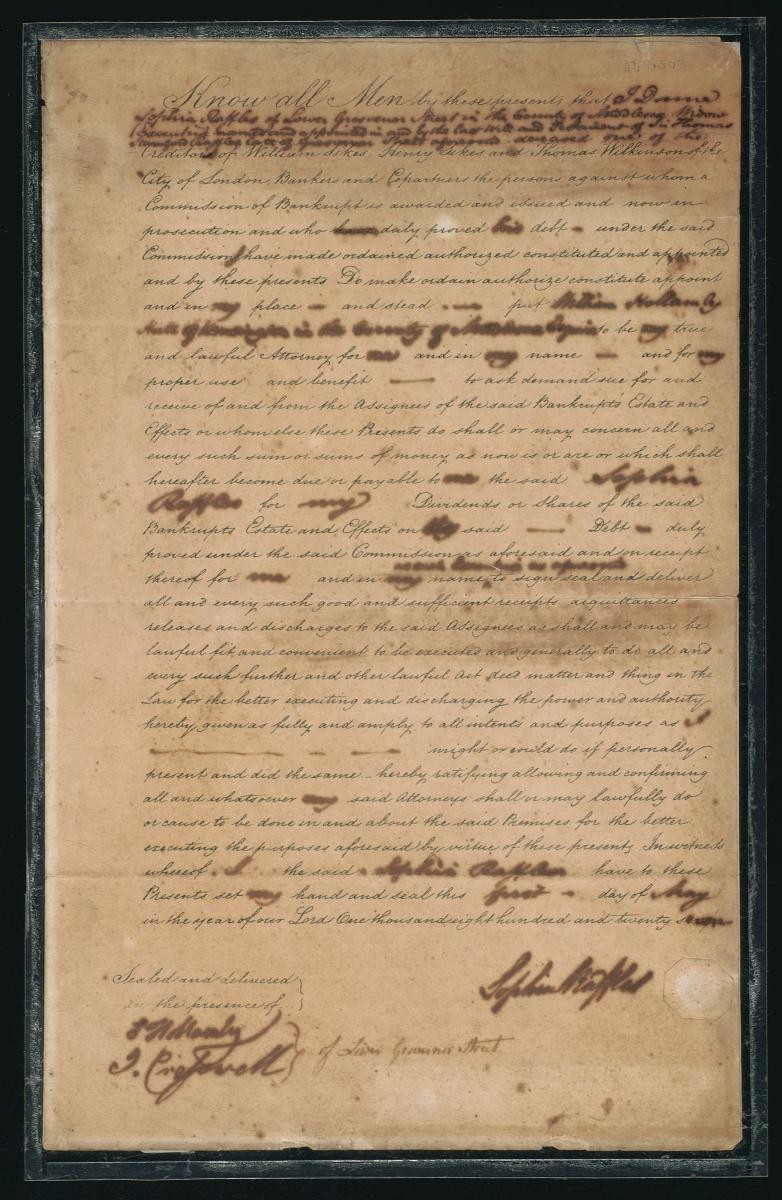 Know all Men by these presents that I Dame
Sophia Raffles of Lower Grosvenor Street in the County of Middlesex Widow
Executrix named and appointed in and by the last Will and Testament of Sir Thomas
Stamford Raffles late of Grosvenor Street aforesaid deceased one of the
Creditors of William Sikes Henry Sikes and Thomas Wilkinson of the
City of London, Bankers and Copartners the persons against whom a
Commission of Bankrupt is awarded and issued and now in
prosecution and who duly proved his debt under the said
Commission have made ordained authorized constituted and appointed
and by these presents Do make ordain authorize constitute appoint
and in my place and stead put William Hollam
of in the County of to be my true
and lawful Attorney for me and in my name and for my
proper use and benefit to ask demand sue for and
receive of and from the Assignees of the said Bankrupts Estate and
Effects or whom else these Presents do shall or may concern all and
every such sum or sums of money as now is or are or which shall
hereafter become due or payable to me the said Sophia
Raffles for my Dividends or Shares of the said
Bankrupts Estate and Effects on said Debt duly
proved under the said Commission as aforesaid and on receipt
as aforesaid
thereof for me and in my name to sign seal and deliver
all and every such good and sufficient receipts acquittances
releases and discharges to the said Assignees as shall and may be
lawful fit and convenient to be executed and generally to do all and
every such further and other lawful Act deed matter and thing in the
Law for the better executing and discharging the power and authority
hereby given as fully and amply to all intents and purposes as I
might or could do if personally
present and did the same hereby ratifying allowing and confirming
all and whatsoever my said Attorneys shall or may lawfully do
or cause to be done in and about the said Premises for the better
executing the purposes aforesaid by virtue of these presents In witness
whereof I the said Sophia Raffles have to these
Presents set my hand and seal this first day of May
in the year of our Lord One thousand eight hundred and twenty seven
Sealed and delivered
in the presence of
Sophia Raffles
of Lower Grosvenor Street